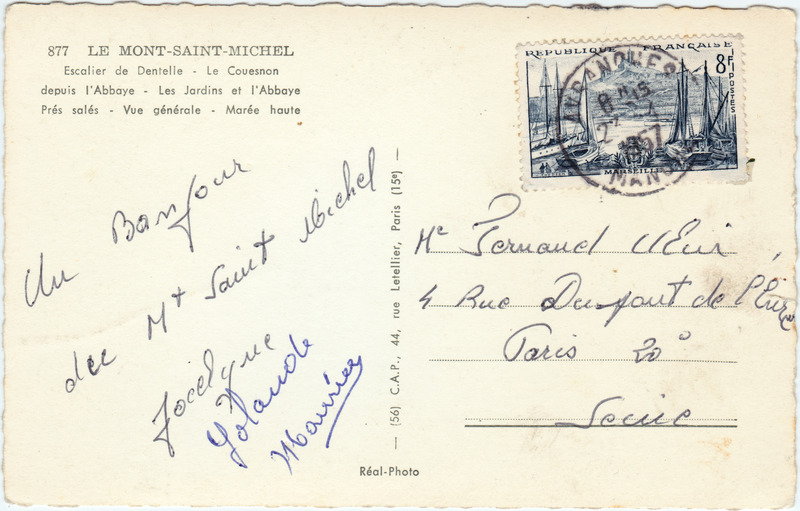 877 LE MONT-SAINT-MICHEL
Escalier de Dentelle - Le Couesnon
depuis l'Abbaye - Les Jardins et l'Abbaye
Prés salés - Vue générale - Marée haute
Un Bonjour
du Mt Saint Michel
Jocelyne
Yolande
Maurice
(56) C.A.P., 44, rue Letellier, Paris (15e)
Réal-Photo
REPUBLIQUE FRANÇAISE
8F
POSTES
MARSEILLE
AVRANCHES
8 H 15
1957
MANCHE
Me Fernand
4 Rue Du pont de
Paris 20°
Seine